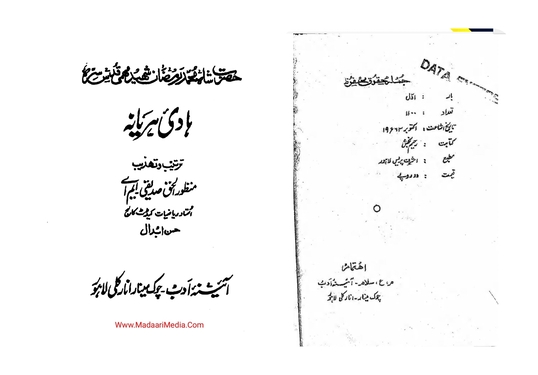 حضرت شاہ محمد رمضان شہید مہمی قدس سرہ
ہادیٔ ہریانہ
ترتیب و تہذیب
منظور الحق صدیقی ایم اے
استاد ریاضیات کیڈٹ کالج
حسن ابدال
آئینۂ ادب - چوک مینار انار کلی لاہور
www.MadaariMedia.Com
DATA
جملہ حقوق محفوظ
بار : اول
تعداد : ۱۱۰۰
تاریخ اشاعت : اکتوبر ۱۹۶۳
کتابت : رحیم بخش
مطبع : اشرف پریس لاہور
قیمت : دو روپے
اہتمام
م ، ع ، سلام - آئینۂ ادب
چوک مینار - انار کلی لاہور